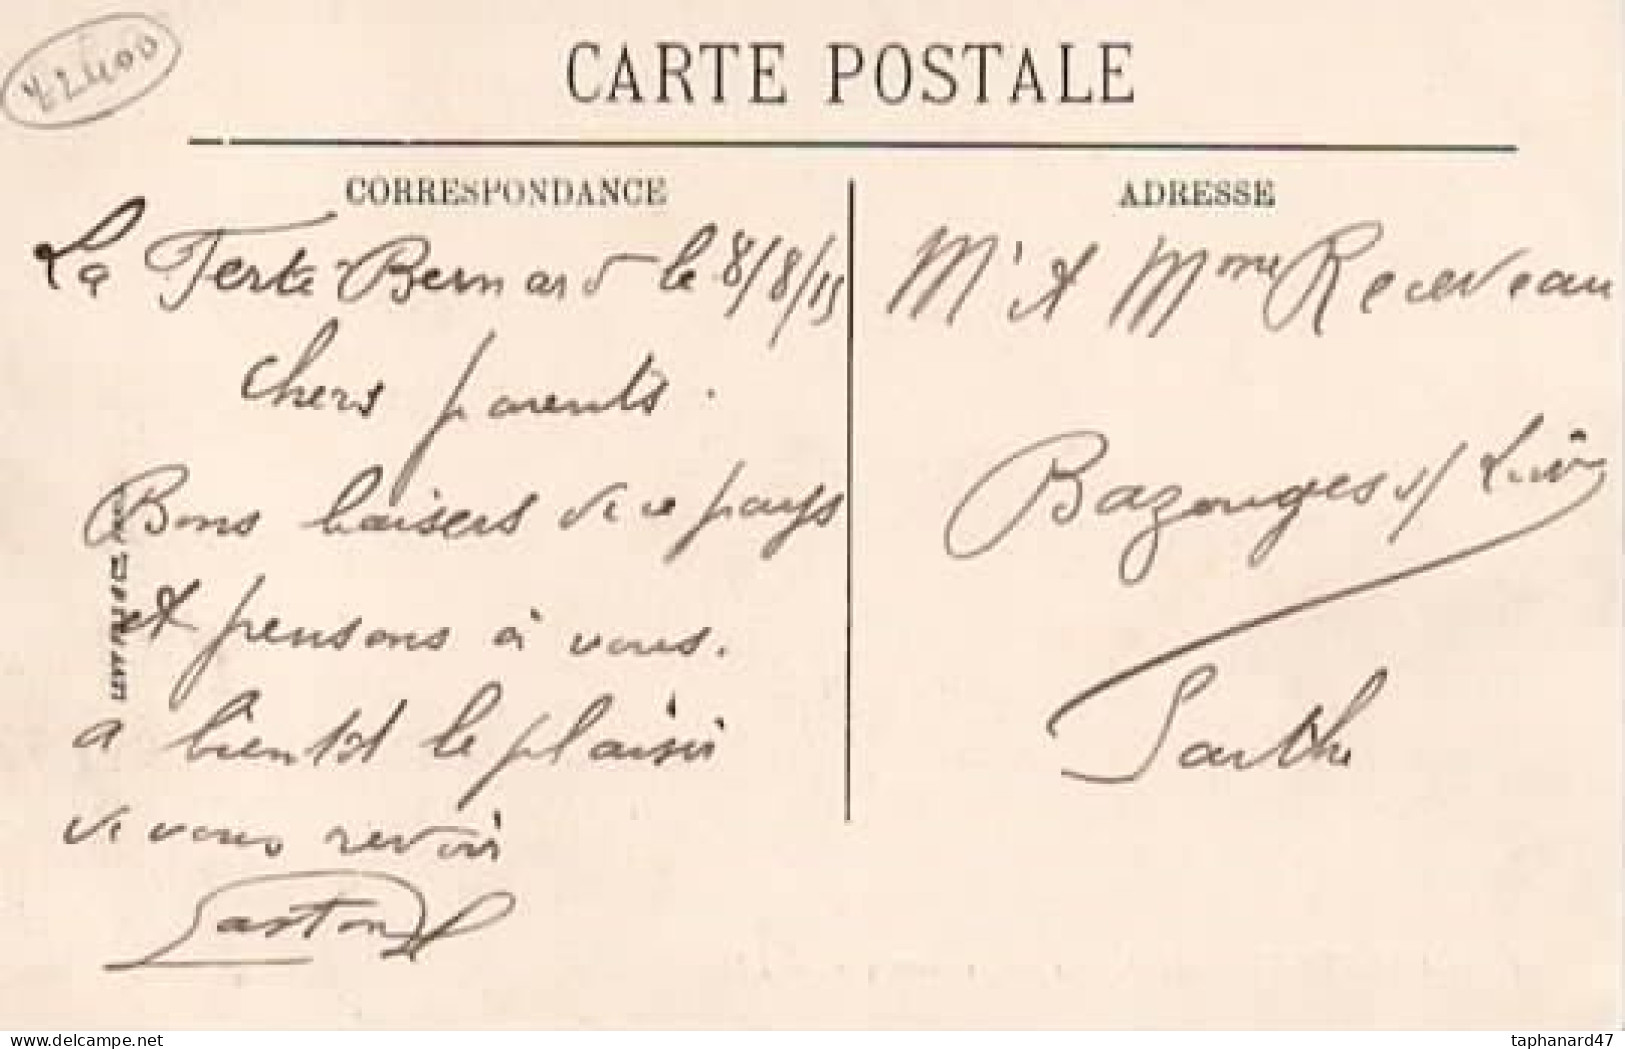 72400
CARTE POSTALE
CORRESPONDANCE
La Ferté-Bernard le 8/8/15
Chers parents.
Bons baisers de ce pays
et pensons à vous.
a bientôt le plaisir
de vous revoir
Gaston
LEVY FILS & CIE, PARIS
ADRESSE
Mr et Mme
Bazouges s/ Loir
Sarthe
delcampe.net
taphanard47